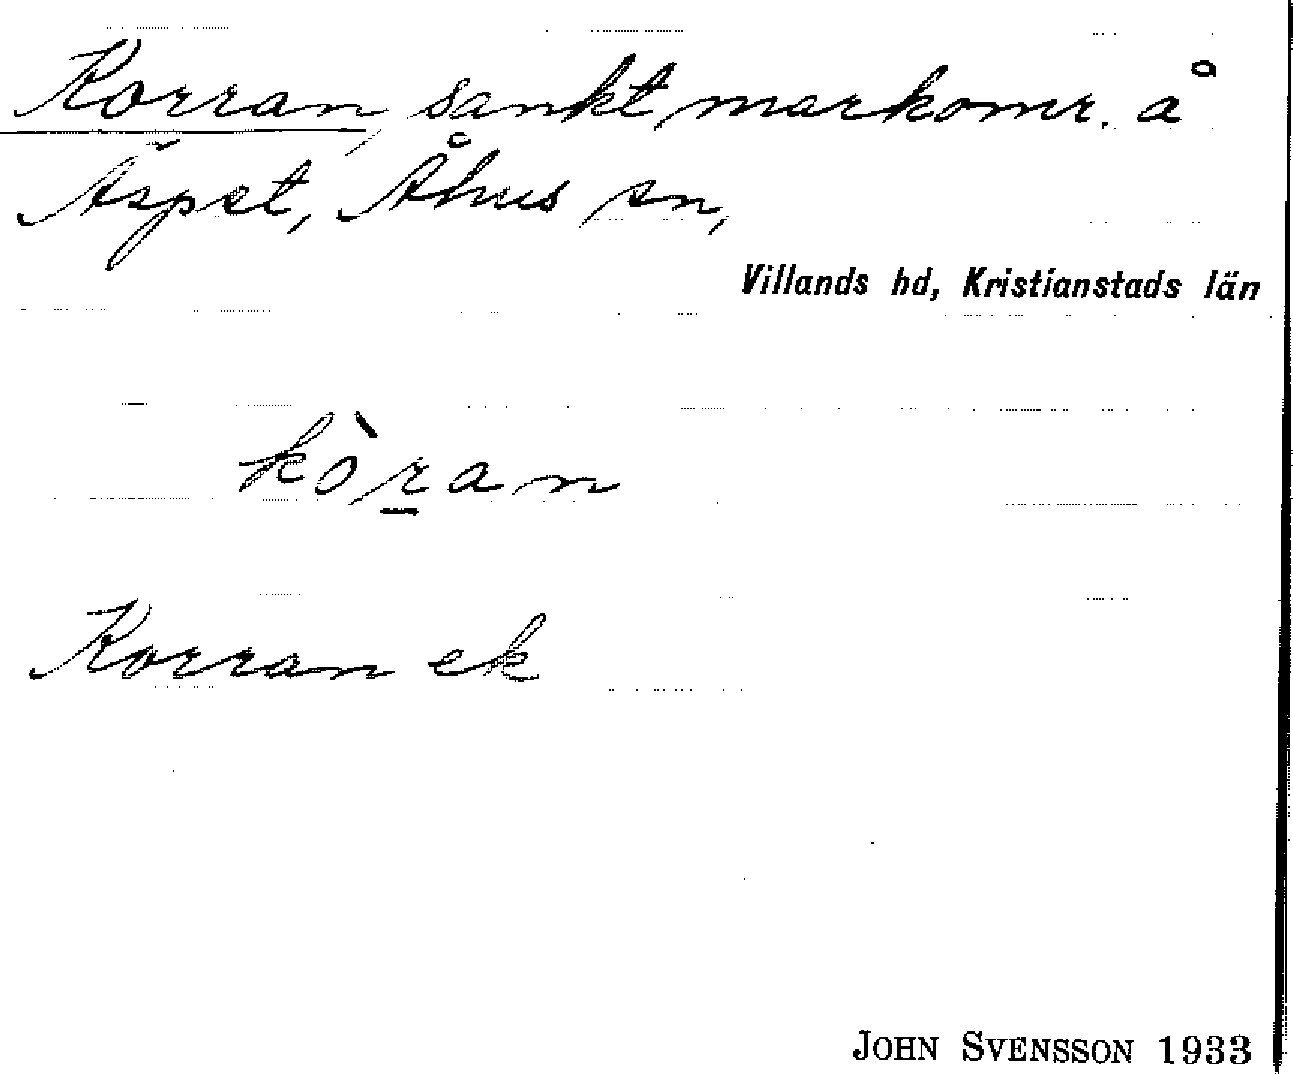 Korran, sankt markomr. å
Äspet, Åhus sn,
Villands hd, Kristianstads län
kòṟan
Korran ek
JOHN SVENSSON 1933